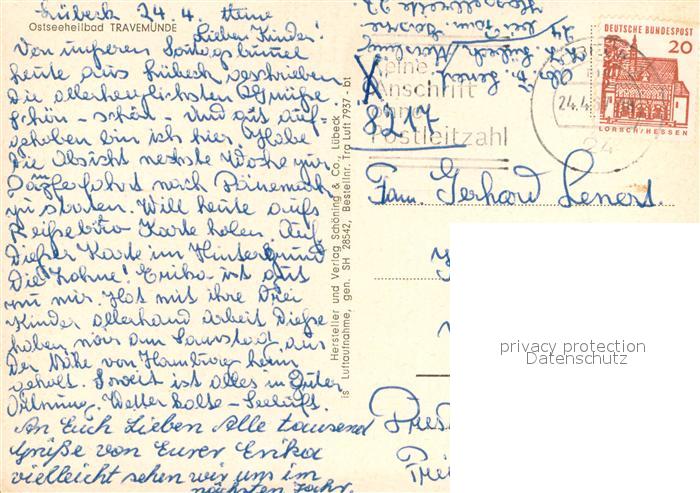 Lübeck 24.4.
Ostseeheilbad TRAVEMÜNDE
Lieben Kinder!
Von unseren Sontagsbumel
heute aus Lübeck geschrieben
die allerherzlichsten Grüße
Schön - schön - Und gut auf-
gehoben bin ich hier. Habe
die Absicht nechste Woche zur
nach Dänemark
zu starten. Will heute aufs
Reisebüro Karte holen. Auf
dieser Karte im Hintergrund
die Erika ist gut
zu mir. Hat mit ihre drei
Kinder allerhand Arbeit diese
haben wir am Samstag aus
der Nähe von Hamburg heim
geholt. Soweit ist alles in guter
Ordnung. Wetter kalte - Seeluft.
An Euch Lieben Alle tausend
Grüße von Eurer Erika
vielleicht sehen wir uns im
nächsten Jahr.
Hersteller und Verlag Schöning & Co., Lübeck
is Luftaufnahme, gen. SH 28542, Bestellnr. Tra Luft 7937 - bt
Keine
Anschrift
ohne
Postleitzahl
24.4.
24
DEUTSCHE BUNDESPOST
20
LORSCH/HESSEN
8217
Fam. Gerhard Lenert.
privacy protection
Datenschutz